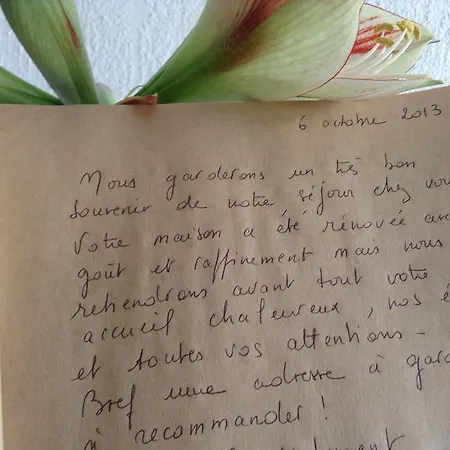 6 octobre 2013
Nous garderons un très bon
souvenir de notre séjour chez vou
Votre maison a été rénovée av
goût et raffinement mais nous
retiendrons avant tout votre
accueil chaleureux, nos é
et toutes vos attentions.
Bref une adresse à gard
à recommander !